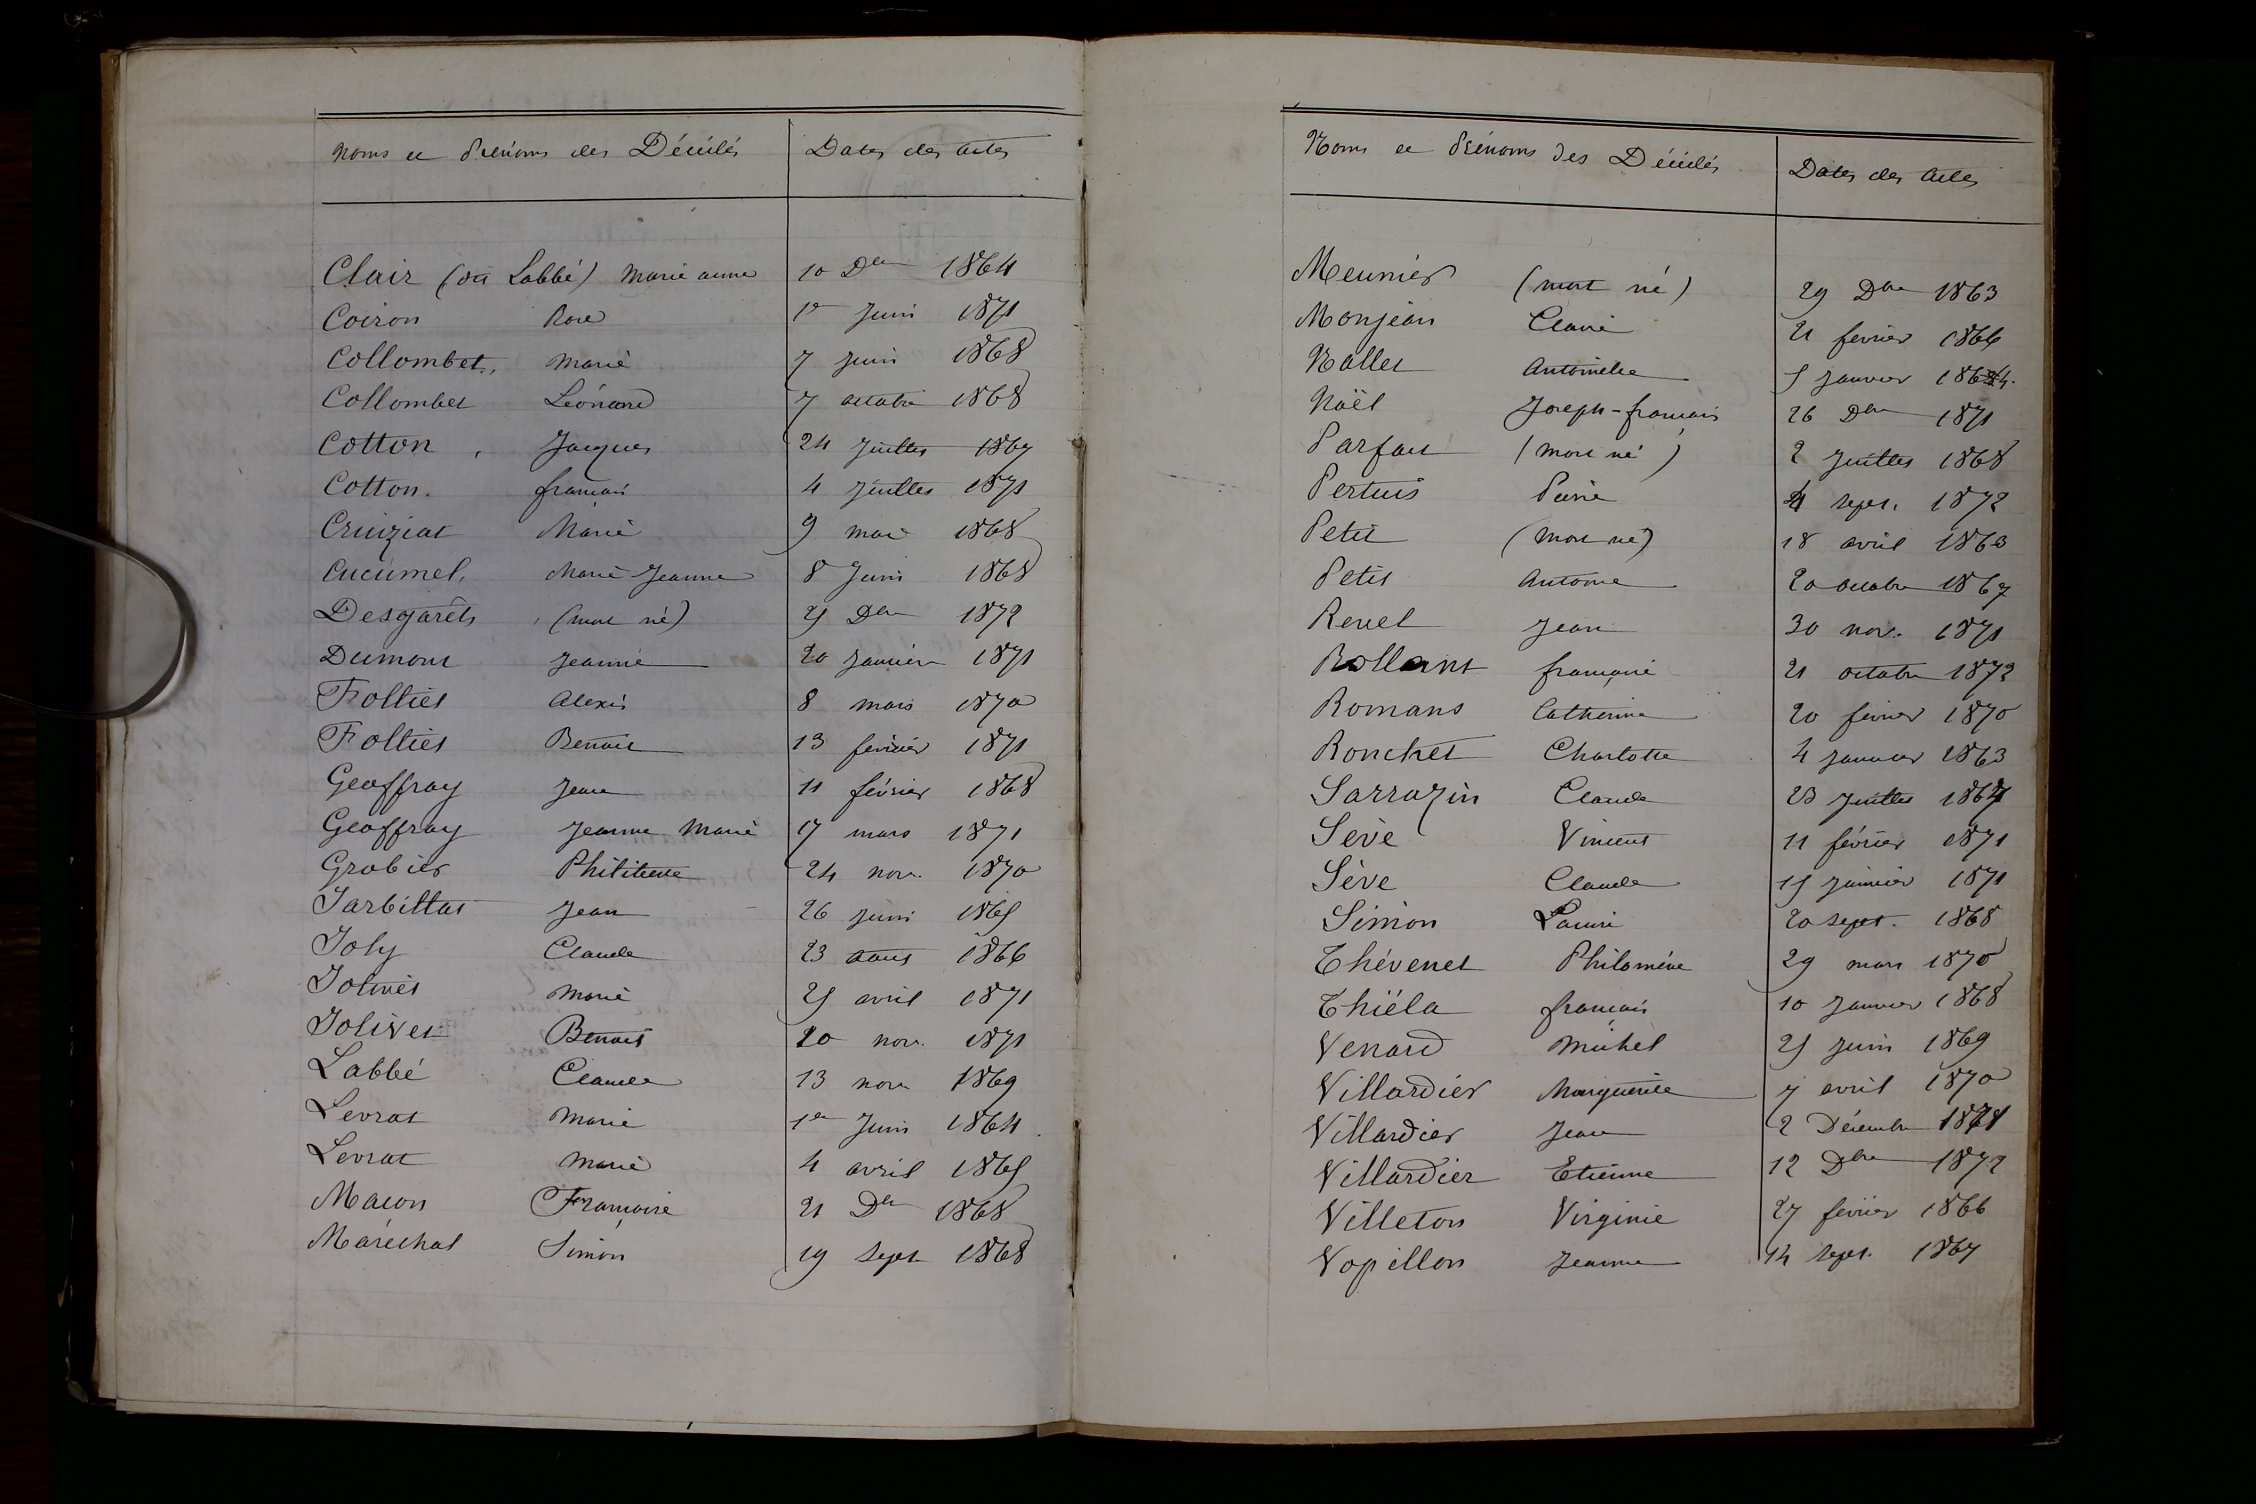 Noms et Prénoms des Décédés Dates des actes
Clair (dit Labbé) Marie anne 10 Dbre 1864
Coiron Rose 1er Juin 1871
Collombet Marie 7 Juin 1868
Collombet Léonard 7 octobre 1868
Cotton Jacques 24 Juillet 1867
Cotton françois 4 Juillet 1871
Cruiziat Marie 9 mai 1868
Cucumel Marie-Jeanne 8 Juin 1868
Desgarêts (mort né) 25 Dbre 1872
Dumont Jeanne 20 Janvier 1871
Folliet Alexis 8 mars 1870
Folliet Benoit 13 février 1871
Geoffray Jean 11 février 1868
Geoffray Jeanne Marie 17 mars 1871
Grobier 24 nov. 1870
Jarbillat Jean 26 Juin 1865
Joly Claude 23 aout 1866
Marie 25 avril 1871
Jolivet Benoit 20 nov. 1871
Labbé Claude 13 nov. 1869
Levrat Marie 1er Juin 1864
Levrat Marie 4 avril 1865
Macon Françoise 21 Dbre 1868
Maréchal Simon 19 Sept. 1868
Noms et Prénoms des Décédés Dates des actes
Meunier (mort né) 29 Dbre 1863
Monjean Claire 21 février 1866
Nallet Antoinette 5 Janvier 1864.
Noël Joseph-françois 26 Dbre 1871
Parfait (mort né) 2 Juillet 1868
Pertuis Pierre 4 Sept. 1872
Petit (mort né) 18 avril 1863
Petit Antoine 20 octobre 1867
Revel Jean 30 nov. 1871
Rollant françoise 21 octobre 1872
Romans Catherine 20 février 1870
Ronchet Charlotte 4 Janvier 1863
Sarrazin Claude 23 Juillet 1867
Sève Vincent 11 février 1871
Sève Claude 15 Janvier 1871
Simon Laurie 20 Sept. 1868
Thévenet Philomène 29 mars 1870
Thiéla françois 10 Janvier 1868
Venard Michel 25 Juin 1869
Villardier Marguerite 7 avril 1870
Villardier Jean 2 Décembre 1871
Villardier Etienne 12 Dbre 1872
Villeton Virginie 27 février 1866
Vopillon Jeanne 14 Sept. 1867